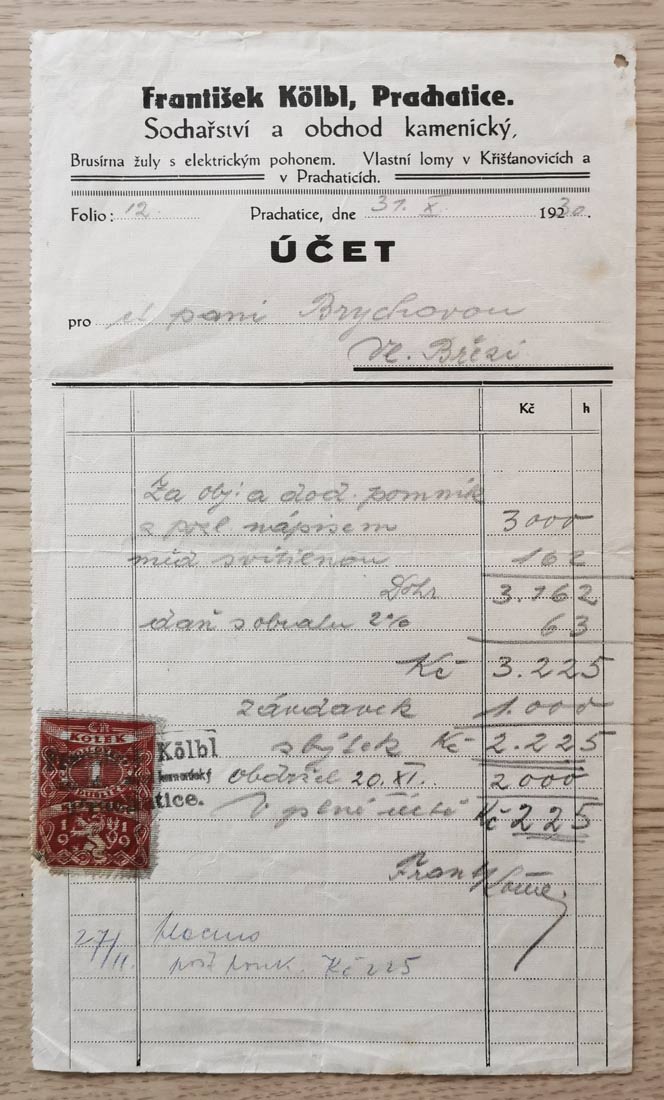 František Kölbl, Prachatice.
Sochařství a obchod kamenický,
Brusírna žuly s elektrickým pohonem. Vlastní lomy v Křišťanovicích a
v Prachaticích.
Folio: 12. Prachatice, dne 31. X. 1930.
ÚČET
pro paní Brychovou
Vl. Březí
Kč h
Za obj. a dod. pomník
s pozl nápisem 3000
měd svítilnou 162
Dohr 3.162
daň s obratu 2% 63
Kč 3.225
závdavek 1.000
zbytek Kč 2.225
obdržel 20.XI. 2000
V plné účtě Kč 225
KOLEK
Kölbl
kamenický
Prachatice.
1919
Frant
27/11. placeno
pošt pouk. Kč 225